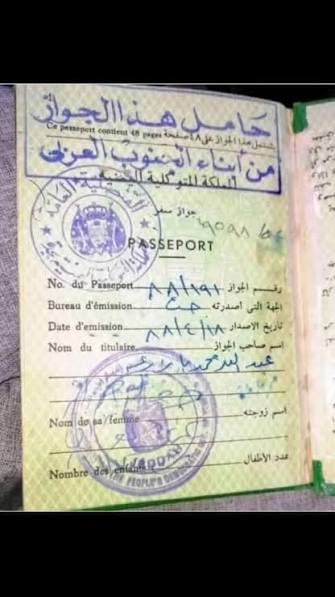 حامل هذا الجواز
يشتمل هذا الجواز على ٤٨ صفحة Ce passeport contient 48 pages
من أبناء الجنوب العربي
المملكة المتوكلية اليمنية
جواز سفر
PASSEPORT
No. du Passeport ٨٨/١٩١ رقم الجواز
Bureau d'émission الجهة التي أصدرته
Date d'emission ٨٨/٤/١٨ تاريخ الاصدار
Nom du titulaire اسم صاحب الجواز
عبد الله محمد
Nom de sa femme اسم زوجته
Nombre des enfants عدد الأطفال
JEDDAH
THE PEOPLE'S DEMOCRATIC